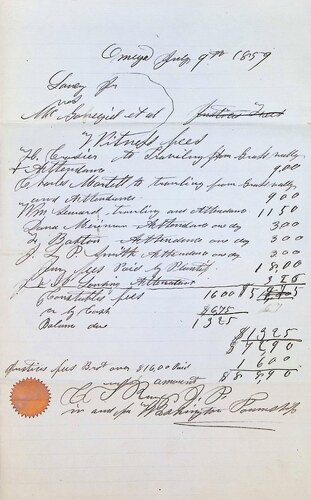 Omega July 9th 1859
Savey Jr
vs
Mc Gonegid et al Justices Fees
Witness fees
H. Crosier to Traveling from Grass vally
& Attendance 9,00
Charles Martell to traveling from Grass vally
and Attendance 9 00
Wm Leonard traveling and Attendance 11 50
Dana Merriman Attendance one day 3 00
Dalton Attendance one day 3 00
J. L. P. Smith Attendance one day 3 00
Jury fees Paid by Plantif 18,00
Attendance 3 00
Constibles fees 16 00
or by Cash 8675
Balance due 13 25
$13 25
$ 72,90
16 00
$ 88,90
Justices fees Brot over $16,00 Paid
amount
J. P.
in and for Washington Township